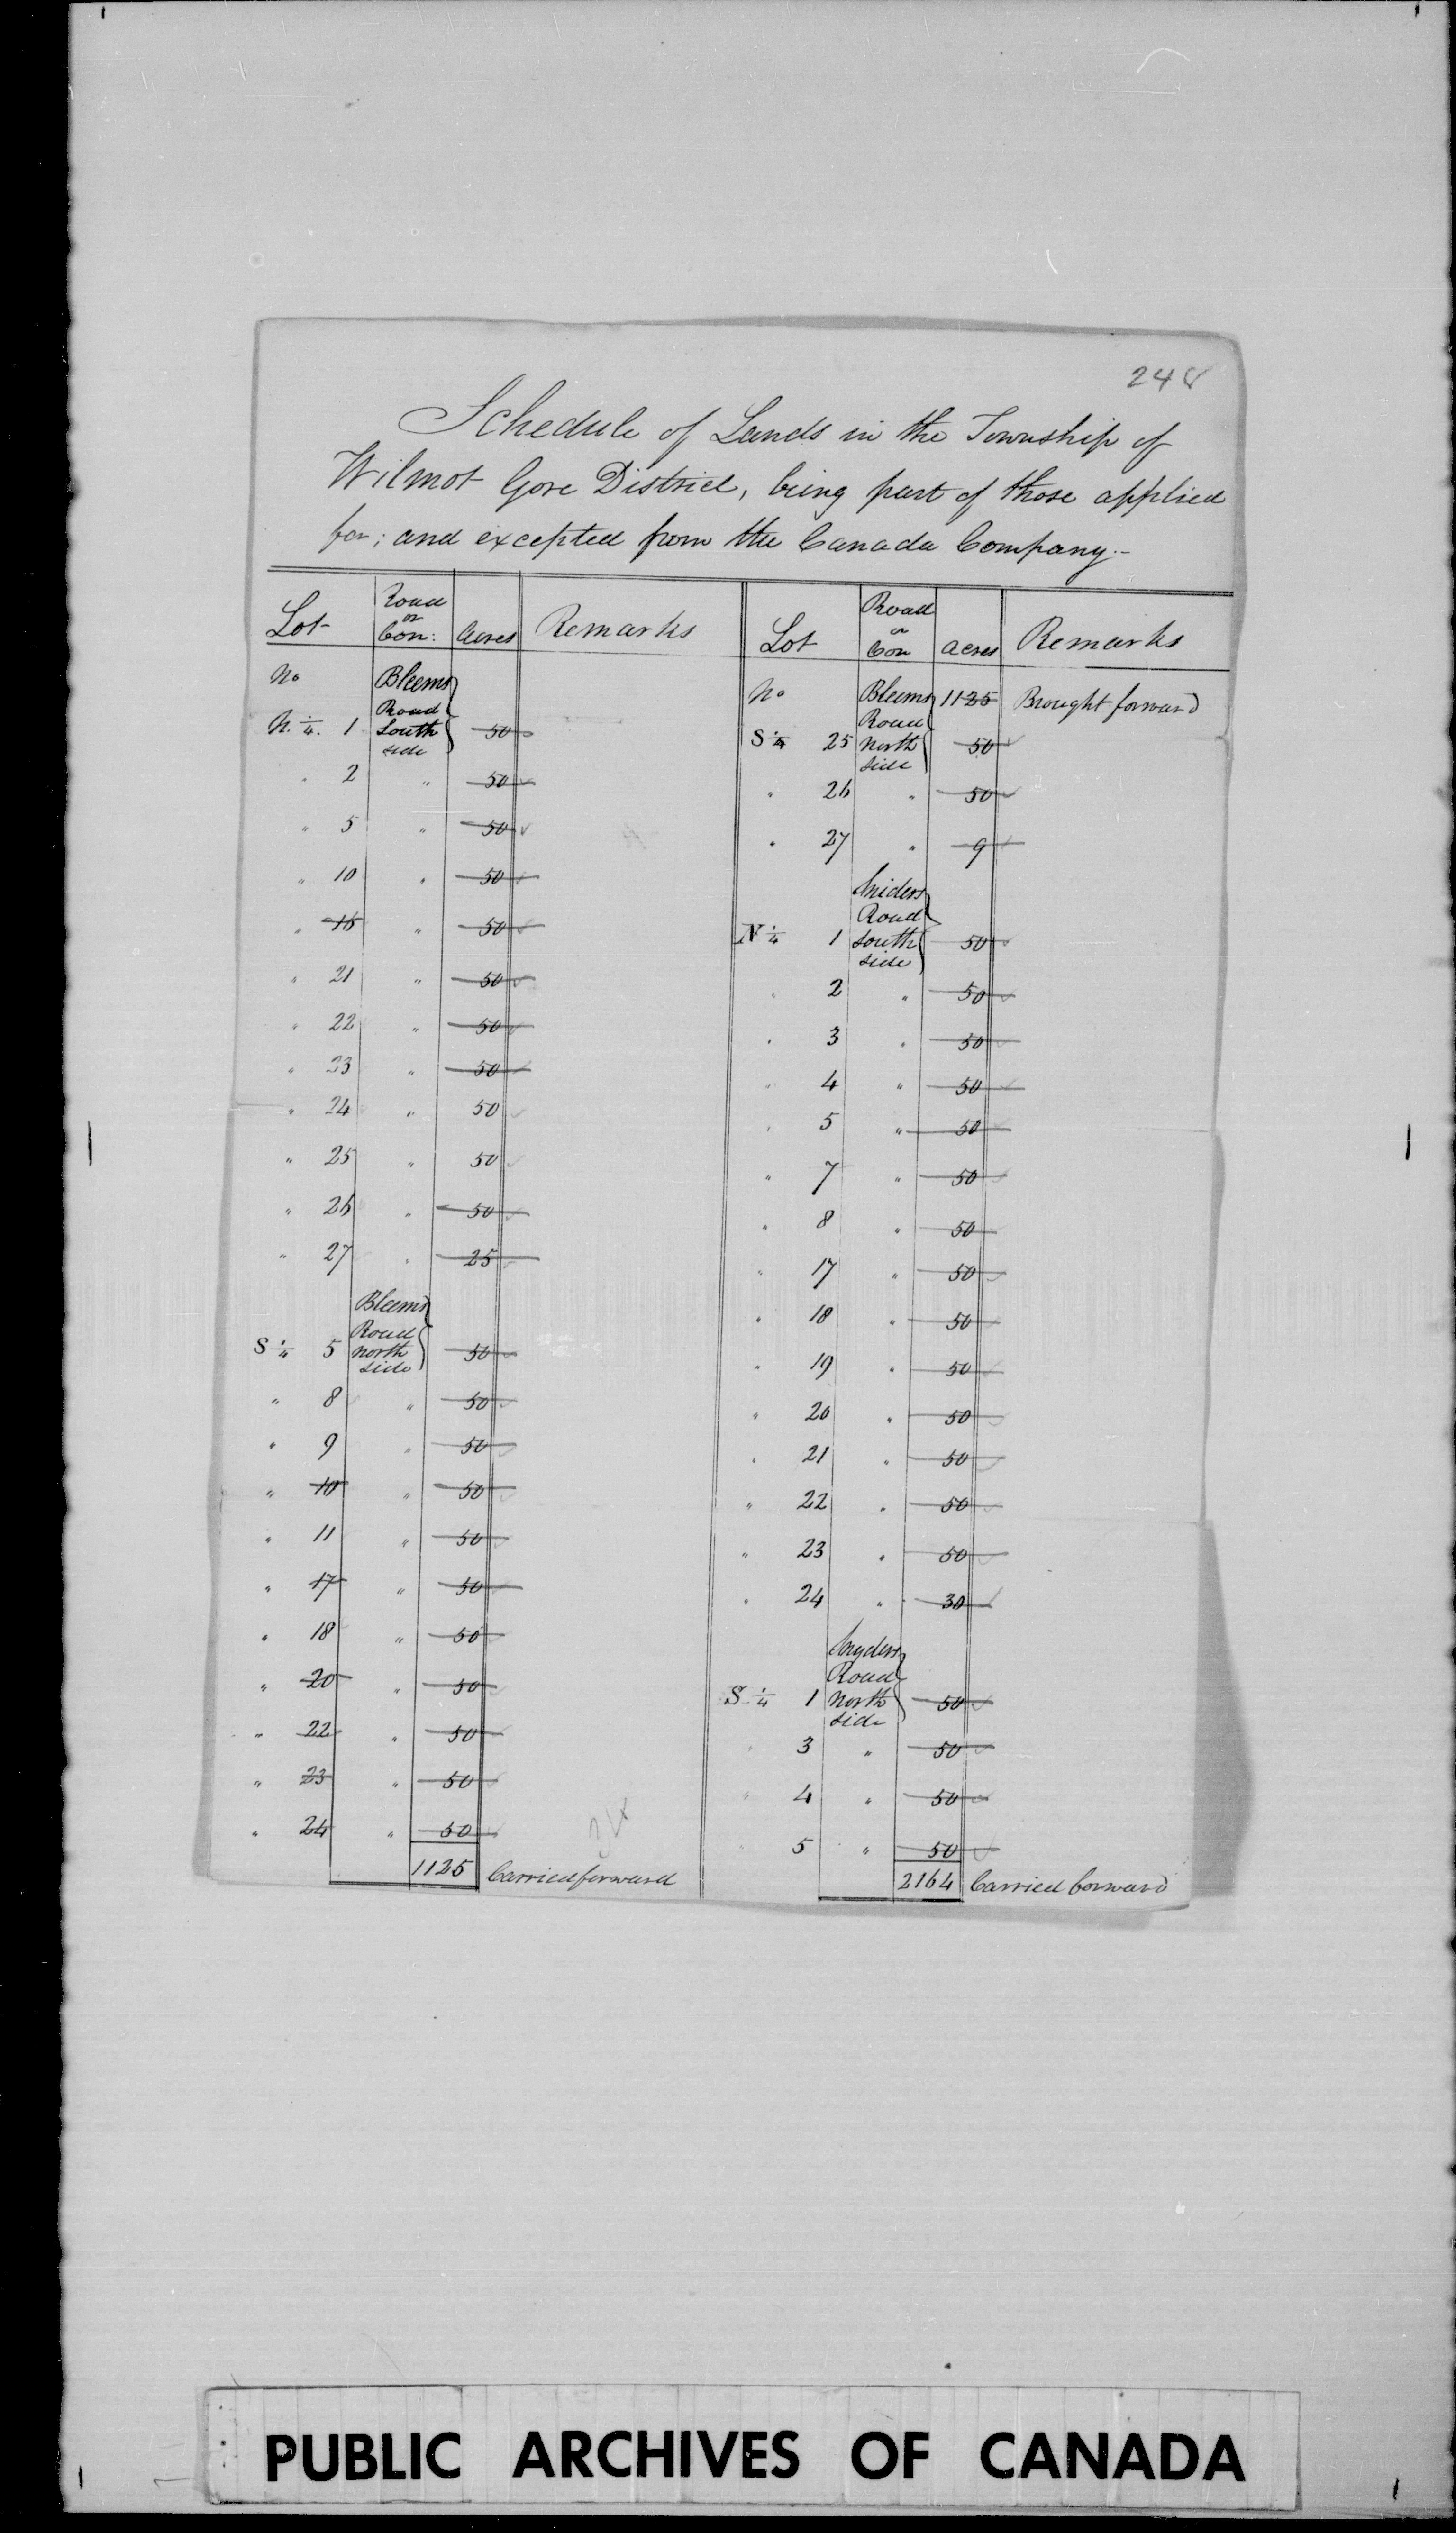 248
Schedule of Lands in the Township of
Wilmot Gore District, being part of those applied
for; and excepted from the Canada Company.-
Lot Road or Con: Acres Remarks
No Bleems
N. 1/4. 1 Road South side 50
" 2 " 50
" 5 " 50
" 10 " 50
" 16 " 50
" 21 " 50
" 22 " 50
" 23 " 50
" 24 " 50
" 25 " 50
" 26 " 50
" 27 " 25
Bleems
S 1/4 5 Road north side 50
" 8 " 50
" 9 " 50
" 10 " 50
" 11 " 50
" 17 " 50
" 18 " 50
" 20 " 50
" 22 " 50
" 23 " 50
" 24 " 50
1125 Carried forward
Lot Road or Con Acres Remarks
No Bleems 1125 Brought forward
S 1/4 25 Road north side 50
" 26 " 50
" 27 " 9
Sniders
N 1/4 1 Road south side 50
" 2 " 50
" 3 " 50
" 4 " 50
" 5 " 50
" 7 " 50
" 8 " 50
" 17 " 50
" 18 " 50
" 19 " 50
" 20 " 50
" 21 " 50
" 22 " 50
" 23 " 50
" 24 " 30
Snyders
S 1/4 1 Road north side 50
" 3 " 50
" 4 " 50
" 5 " 50
2164 Carried forward
PUBLIC ARCHIVES OF CANADA